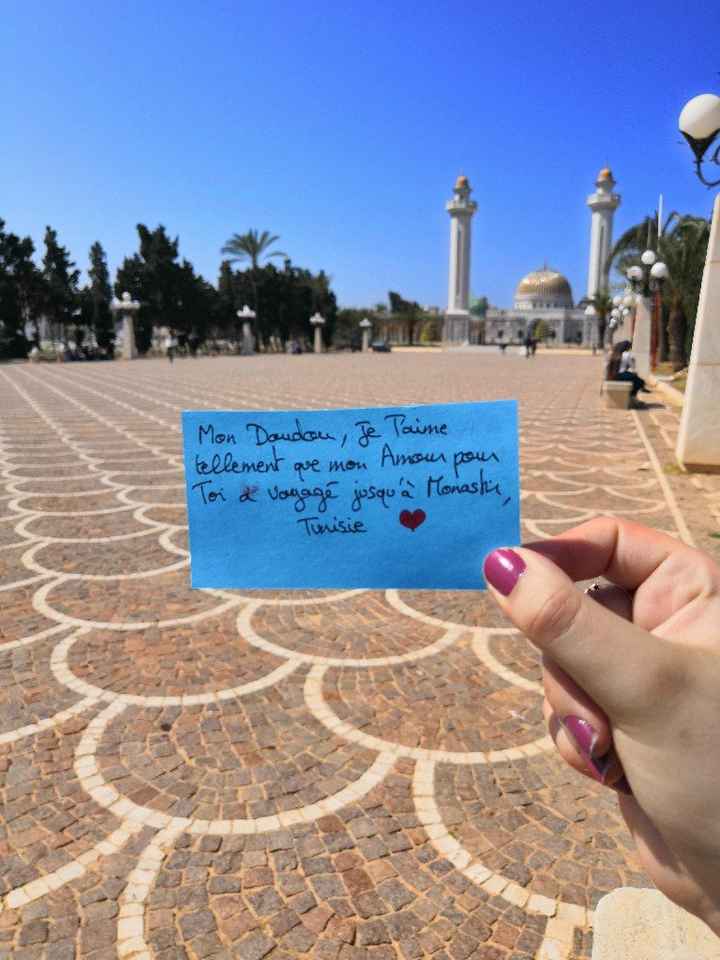 Mon Doudou, Je T'aime
tellement que mon Amour pour
Toi a voyagé jusqu'à Monastir,
Tunisie ♥